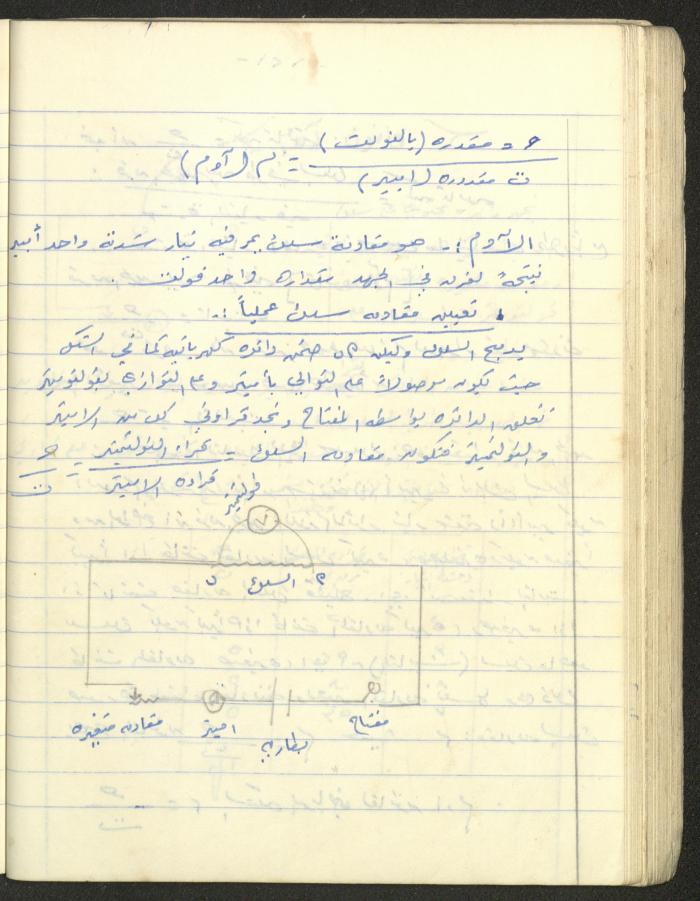 ج = مقدره (بالفولت) = م (آوم)
ت مقدوره (امبير)
الآوم :- هو مقاومة سلك يمر فيه تيار شدته واحد أمبير
نتيجة لفرق في الجهد مقداره واحد فولت .
تعيين مقاومة سلك عملياً :-
يدمج السلك وليكن م ن ضمن دائره كهربائيه كما في الشكل
حيث يكون موصولاً على التوالي بأميتر وعلى التوازي بفولتميتر
تغلق الدائره بواسطه المفتاح ونجد قراءتي كل من الاميتر
والفولتميتر فتكون مقاومه السلك = قراءة الفولتميتر = ج
قراءه الاميتر ت
فولتميتر
V
م السلك ن
A
مفتاح
بطاريه
اميتر
مقاومه متغيره